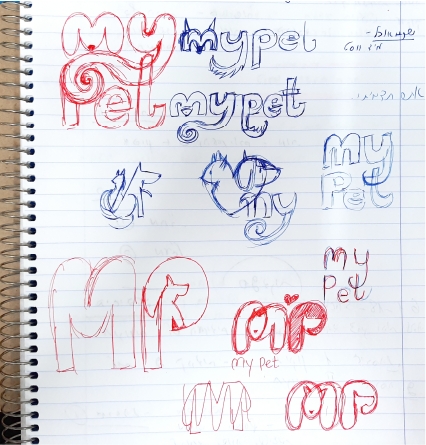 my
Pet
mypet
mypet
my
Pet
my
my
Pet
MP
MP
my pet
MP
MP